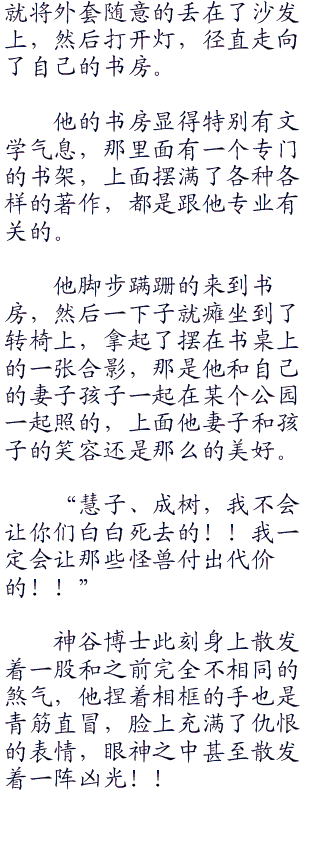 就将外套随意的丢在了沙发
上，然后打开灯，径直走向
了自己的书房。
他的书房显得特别有文
学气息，那里面有一个专门
的书架，上面摆满了各种各
样的著作，都是跟他专业有
关的。
他脚步蹒跚的来到书
房，然后一下子就瘫坐到了
转椅上，拿起了摆在书桌上
的一张合影，那是他和自己
的妻子孩子一起在某个公园
一起照的，上面他妻子和孩
子的笑容还是那么的美好。
“慧子、成树，我不会
让你们白白死去的！！我一
定会让那些怪兽付出代价
的！！”
神谷博士此刻身上散发
着一股和之前完全不相同的
煞气，他捏着相框的手也是
青筋直冒，脸上充满了仇恨
的表情，眼神之中甚至散发
着一阵凶光！！